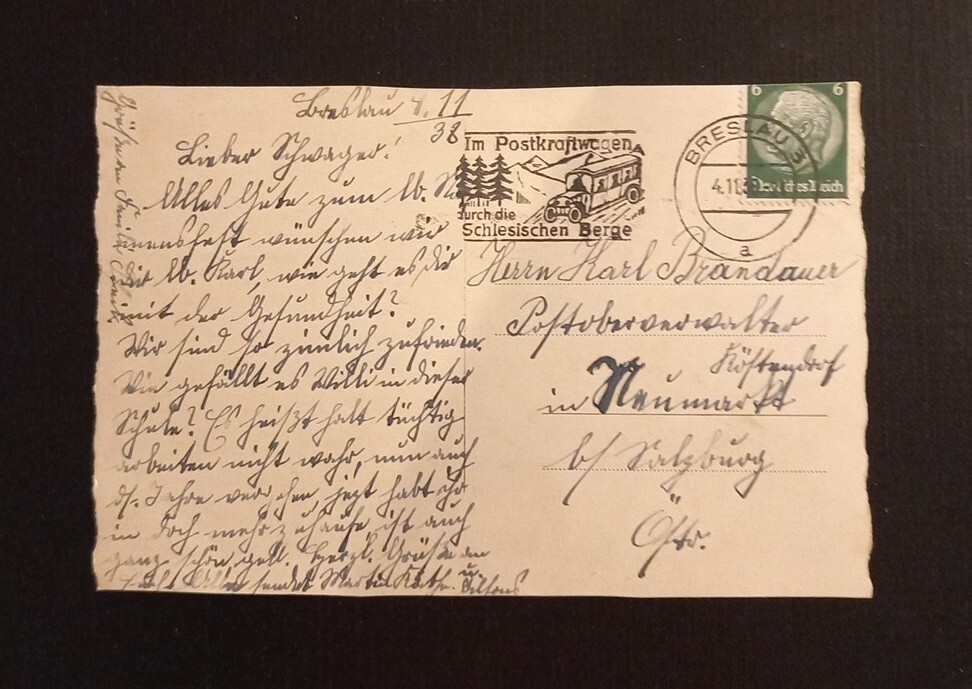 Breslau 4. 11
38
Lieber Schwager!
Alles Gute zum lb. Na
mensfest wünschen wir
Dir lb. Karl, wie geht es dir
mit der Gesundheit?
Wir sind so ziemlich zufrieden.
Wie gefällt es Willi in dieser
Schule? Es heißt halt tüchtig
arbeiten nicht wahr, nun auch
ds. Jahre vergehen, jetzt habt ihr
in doch mehr zuhause ist auch
ganz schön gell. Herzl. Grüße an
Euch Alle sendet Martin Käthe u. Alfons
Grüße an Familie
Im Postkraftwagen
durch die
Schlesischen Berge
BRESLAU
4.11.38
a
6 6
Deutsches Reich
Herrn Karl Brandauer
Postoberverwalter
Köstendorf
in Neumarkt
b/ Salzburg
Östr.